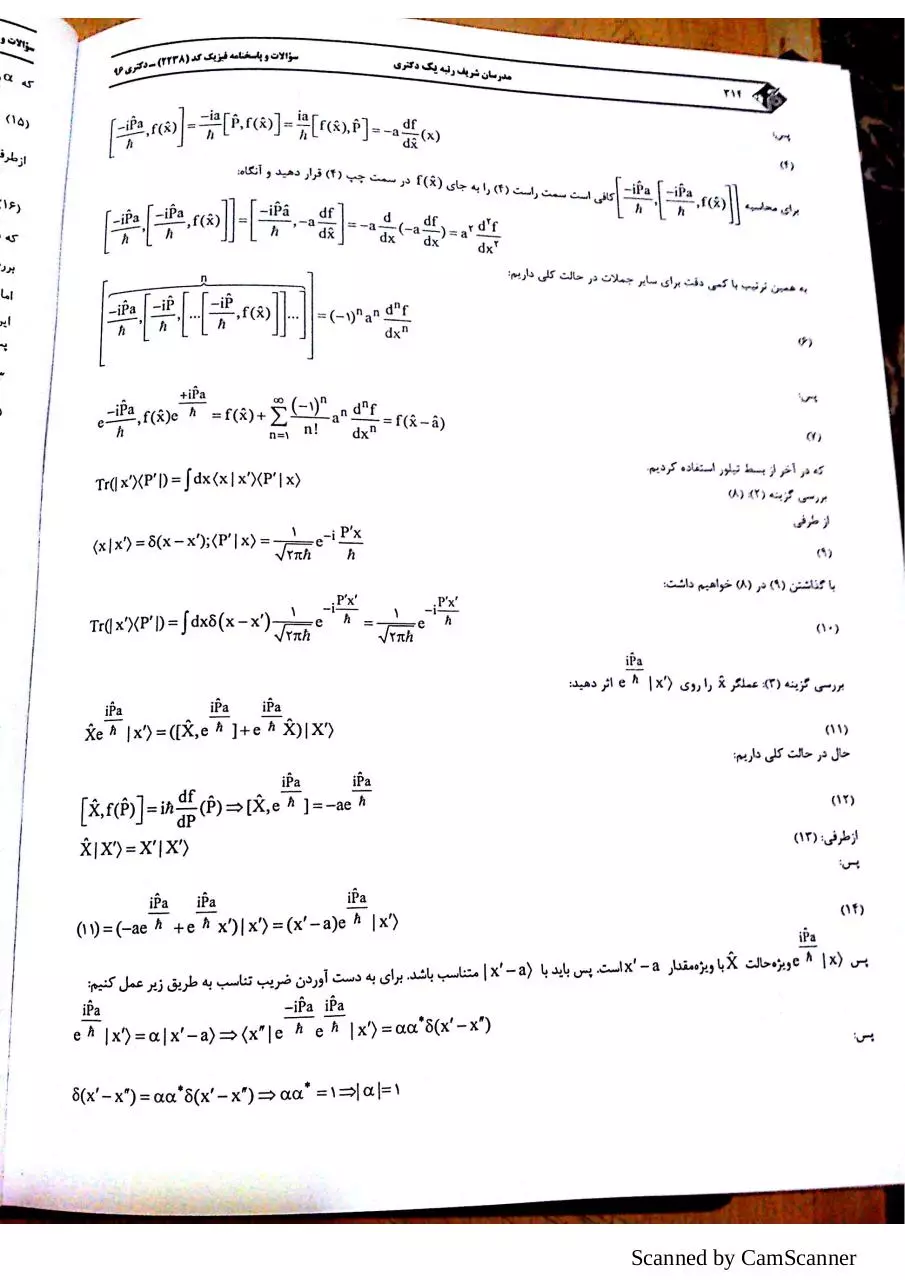 سؤالات و پاسخنامه فیزیک کد (۲۲۳۸) ــ دکتری ۹۶ مدرسان شریف رتبه یک دکتری ۳۱۴
پس:
[−iP̂a/ħ, f(x̂)] = −ia/ħ [P̂, f(x̂)] = ia/ħ [f(x̂), P̂] = −a df/dx̂ (x)
(۴)
برای محاسبه [−iP̂a/ħ, [−iP̂a/ħ, f(x̂)]] کافی است سمت راست (۴) را به جای f(x̂) در سمت چپ (۴) قرار دهید و آنگاه:
[−iP̂a/ħ, [−iP̂a/ħ, f(x̂)]] = [−iP̂â/ħ, −a df/dx̂] = −a d/dx (−a df/dx) = a² d²f/dx²
به همین ترتیب با کمی دقت برای سایر جملات در حالت کلی داریم:
n
[−iP̂a/ħ, [−iP̂/ħ, [... [−iP̂/ħ, f(x̂)]] ...]] = (−۱)ⁿ aⁿ dⁿf/dxⁿ
(۶)
پس:
e −iP̂a/ħ, f(x̂)e^(+iP̂a/ħ) = f(x̂) + ∑_(n=۱)^∞ (−۱)ⁿ/n! aⁿ dⁿf/dxⁿ = f(x̂ − â)
(۷)
که در آخر از بسط تیلور استفاده کردیم.
Tr(|x′⟩⟨P′|) = ∫dx⟨x|x′⟩⟨P′|x⟩
بررسی گزینه (۲): (۸)
از طرفی
⟨x|x′⟩ = δ(x − x′); ⟨P′|x⟩ = ۱/√۲πħ e^−i P′x/ħ
(۹)
با گذاشتن (۹) در (۸) خواهیم داشت:
Tr(|x′⟩⟨P′|) = ∫dxδ(x − x′) ۱/√۲πħ e^(−i P′x′/ħ) = ۱/√۲πħ e^(−i P′x′/ħ)
(۱۰)
بررسی گزینه (۳): عملگر x̂ را روی e^(iP̂a/ħ) |x′⟩ اثر دهید:
X̂e^(iP̂a/ħ) |x′⟩ = ([X̂, e^(iP̂a/ħ)] + e^(iP̂a/ħ) X̂)|X′⟩
(۱۱)
حال در حالت کلی داریم:
[X̂, f(P̂)] = iħ df/dP (P̂) ⇒ [X̂, e^(iP̂a/ħ)] = −ae^(iP̂a/ħ)
(۱۲)
X̂|X′⟩ = X′|X′⟩
ازطرفی: (۱۳)
پس:
(۱۱) = (−ae^(iP̂a/ħ) + e^(iP̂a/ħ) x′)|x′⟩ = (x′ − a)e^(iP̂a/ħ) |x′⟩
(۱۴)
پس e^(iP̂a/ħ) |x⟩ ویژه‌حالت X̂ با ویژه‌مقدار x′ − a است. پس باید با |x′ − a⟩ متناسب باشد. برای به دست آوردن ضریب تناسب به طریق زیر عمل کنیم:
e^(iP̂a/ħ) |x′⟩ = α|x′ − a⟩ ⇒ ⟨x″|e^(−iP̂a/ħ) e^(iP̂a/ħ) |x′⟩ = αα*δ(x′ − x″)
پس:
δ(x′ − x″) = αα*δ(x′ − x″) ⇒ αα* = ۱ ⇒ |α| = ۱
سؤالات و
که α
(۱۵)
ازطرف
(۱۶)
که
برر
اما
این
Scanned by CamScanner